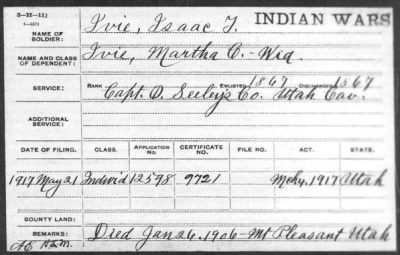 3-H-11)
INDIAN WARS
NAME OF SOLDIER: Ivie, Isaac T.
NAME AND CLASS OF DEPENDENT: Ivie, Martha C.-Wid.
SERVICE: RANK ENLISTED 1867 DISCHARGED 1867
Capt. O. Seeley's Co. Utah Cav.
ADDITIONAL SERVICE:
DATE OF FILING. CLASS. APPLICATION NO. CERTIFICATE NO. FILE NO. ACT. STATE.
1917 May 21 Indwid 12598 9721 Mch4, 1917 Utah
BOUNTY LAND:
REMARKS: Died Jan 26, 1906-Mt Pleasant Utah